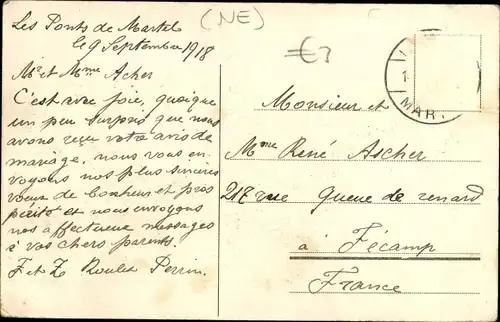 (NE)
€7
Les Ponts de Martel
le 9 Septembre 1918
Mr et Mme Acher
C'est avec joie, quoique
un peu surpris que nous
avons reçu votre avis de
mariage, nous vous en-
voyons nos plus sincères
vœux de bonheur et pros
périté et nous envoyons
nos affectueux messages
à vos chers parents.
F et Z Roulet Perrin.
Monsieur et
Mme René Ascher
217 rue Queue de renard
à Fécamp
France
MAR.